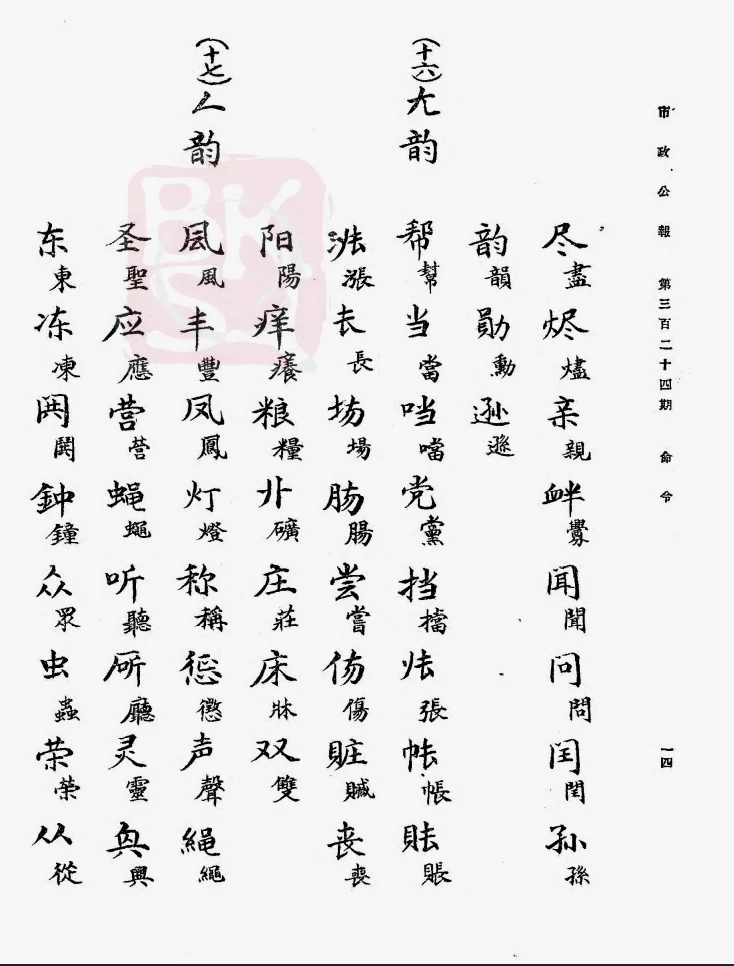 市政公報 第三百二十四期 命令 一四
尽盡 烬燼 亲親 衅釁 闻聞 问問 闰閏 孙孫
韵韻 勋勳 逊遜
(十六)ㄤ韵 帮幫 当當 珰噹 党黨 挡擋 张張 帐帳 账賬
涨漲 长長 场場 肠腸 尝嘗 伤傷 賍贓 丧喪
阳陽 痒癢 粮糧 卝礦 庄莊 床牀 双雙
(十七)ㄥ韵 凨風 丰豐 凤鳳 灯燈 称稱 惩懲 声聲 縄繩
圣聖 应應 营營 蝇蠅 听聽 厛廳 灵靈 兴興
东東 冻凍 鈡鐘 众眾 虫蟲 荣榮 从從